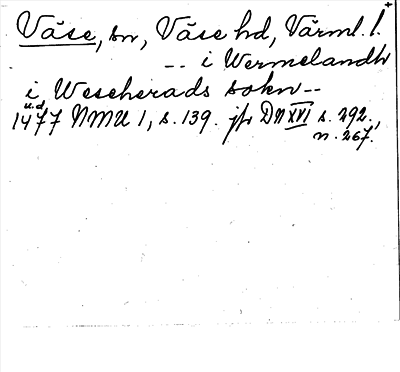 Väse, sn, Väse hd, Värml. l. +
-- i Wermelandh
i Wescherads sokn --
u.d.
1477 NMU 1, s. 139. jfr DN XVI s. 292.,
n. 267.